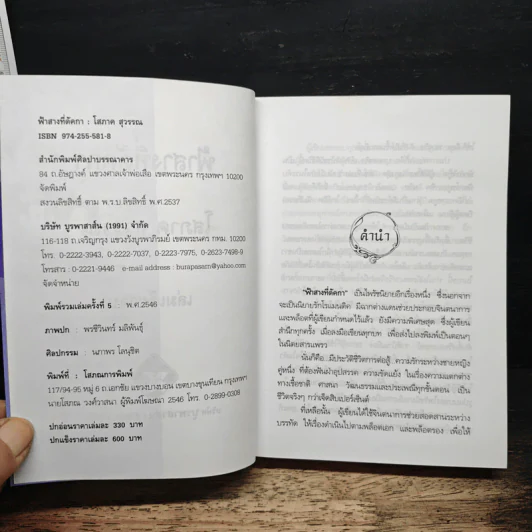 ฟ้าสางที่ดัคกา : โสภาค สุวรรณ
ISBN 974-255-581-8
สำนักพิมพ์ศิลปาบรรณาคาร
84 ถ.อัษฎางค์ แขวงศาลเจ้าพ่อเสือ เขตพระนคร กรุงเทพฯ 10200
จัดพิมพ์
สงวนลิขสิทธิ์ ตาม พ.ร.บ.ลิขสิทธิ์ พ.ศ.2537
บริษัท บูรพาสาส์น (1991) จำกัด
116-118 ถ.เจริญกรุง แขวงวังบูรพาภิรมย์ เขตพระนคร กทม. 10200
โทร. 0-2222-3943, 0-2222-7037, 0-2223-7975, 0-2623-7498-9
โทรสาร : 0-2221-9446 e-mail address : burapasarn@yahoo.com
จัดจำหน่าย
พิมพ์รวมเล่มครั้งที่ 5 พ.ศ.2546
ภาพปก : พรชีวินทร์ มลิพันธุ์
ศิลปกรรม : นภาพร โลนุชิต
พิมพ์ที่ : โสภณการพิมพ์
117/94-95 หมู่ 6 ถ.เอกชัย แขวงบางบอน เขตบางขุนเทียน กรุงเทพฯ
นายโสภณ วงศ์วาสนา ผู้พิมพ์โฆษณา 2546 โทร. 0-2899-0308
ปกอ่อนราคาเล่มละ 330 บาท
ปกแข็งราคาเล่มละ 600 บาท
คำนำ
"ฟ้าสางที่ดัคกา" เป็นไพรัชนิยายอีกเรื่องหนึ่ง ซึ่งนอกจาก
จะเป็นนิยายรักโรแมนติค มีฉากต่างแดนช่วยประกอบจินตนาการ
และพล็อตที่ผู้เขียนกำหนดไว้แล้ว ยังมีความพิเศษสุด ซึ่งผู้เขียน
สำนึกทุกครั้ง เมื่อลงมือเขียนทุกบท เพื่อส่งไปลงพิมพ์เป็นตอนๆ
ในนิตยสารแพรว
นั่นก็คือ มีประวัติชีวิตการต่อสู้ ความรักระหว่างชายหญิง
คู่หนึ่ง ที่ต้องฟันฝ่าอุปสรรค ความขัดแย้ง ในเรื่องความแตกต่าง
ทางเชื้อชาติ ศาสนา วัฒนธรรมและประเพณีทุกขั้นตอน เป็น
ชีวิตจริงๆ กว่าเจ็ดสิบเปอร์เซ็นต์
ที่เหลือนั้น ผู้เขียนได้ใช้จินตนาการช่วยสอดสานระหว่าง
บรรทัด ให้เรื่องดำเนินไปตามพล็อตเอก และพล็อตรอง เพื่อให้